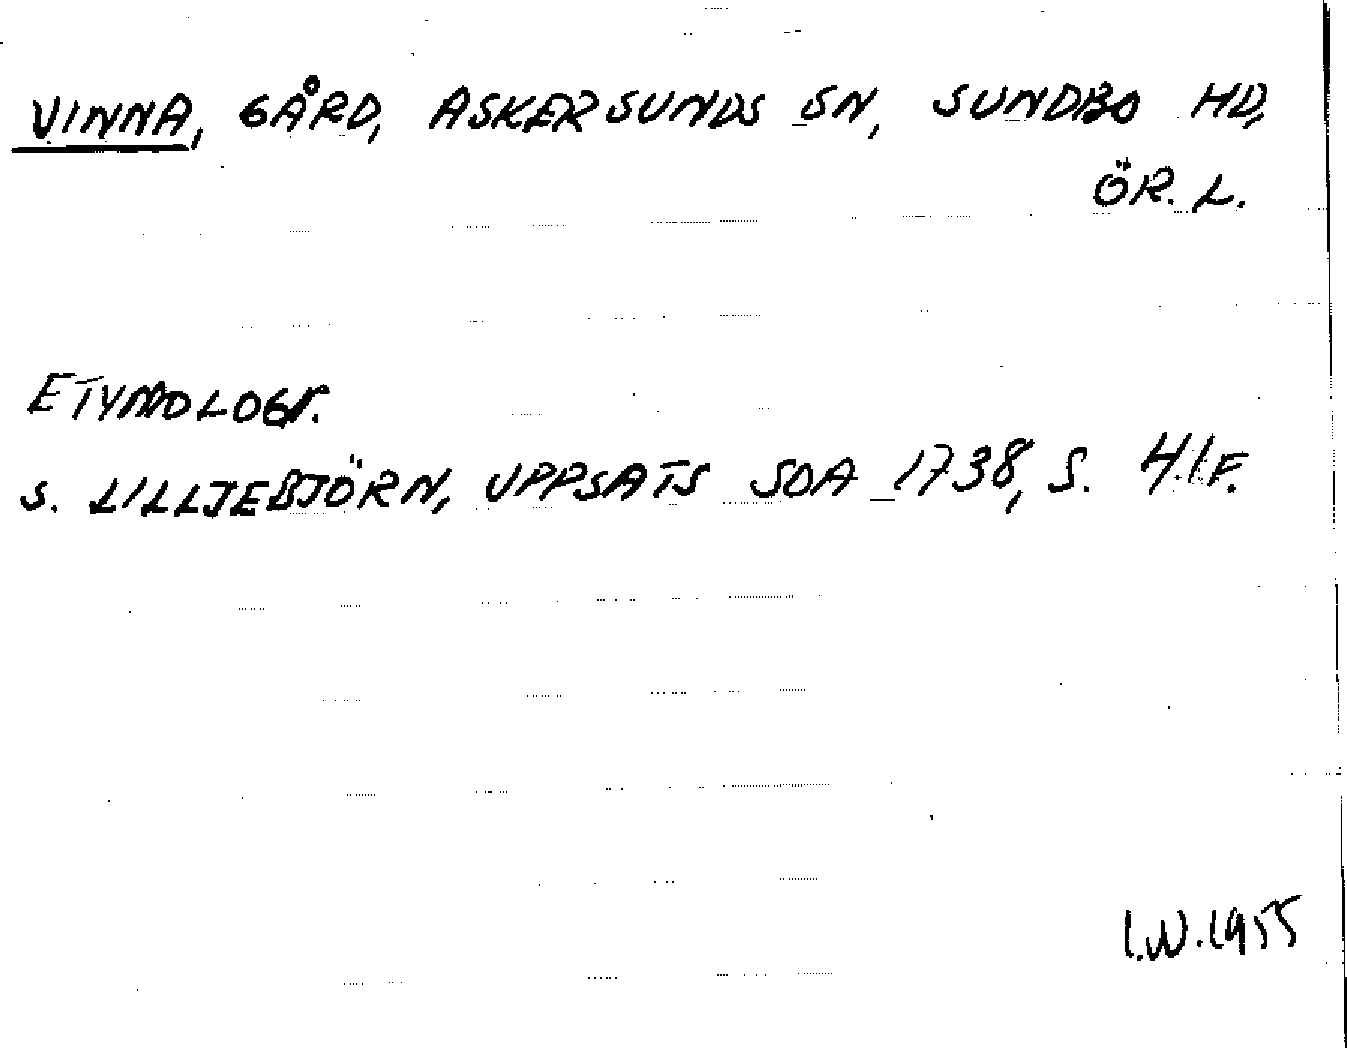 VINNA, GÅRD, ASKERSUNDS SN, SUNDBO HD,
ÖR. L.
ETYMOLOGI.
S. LILLJEBJÖRN, UPPSATS SOA 1738, S. 41F.
I.W. 1955